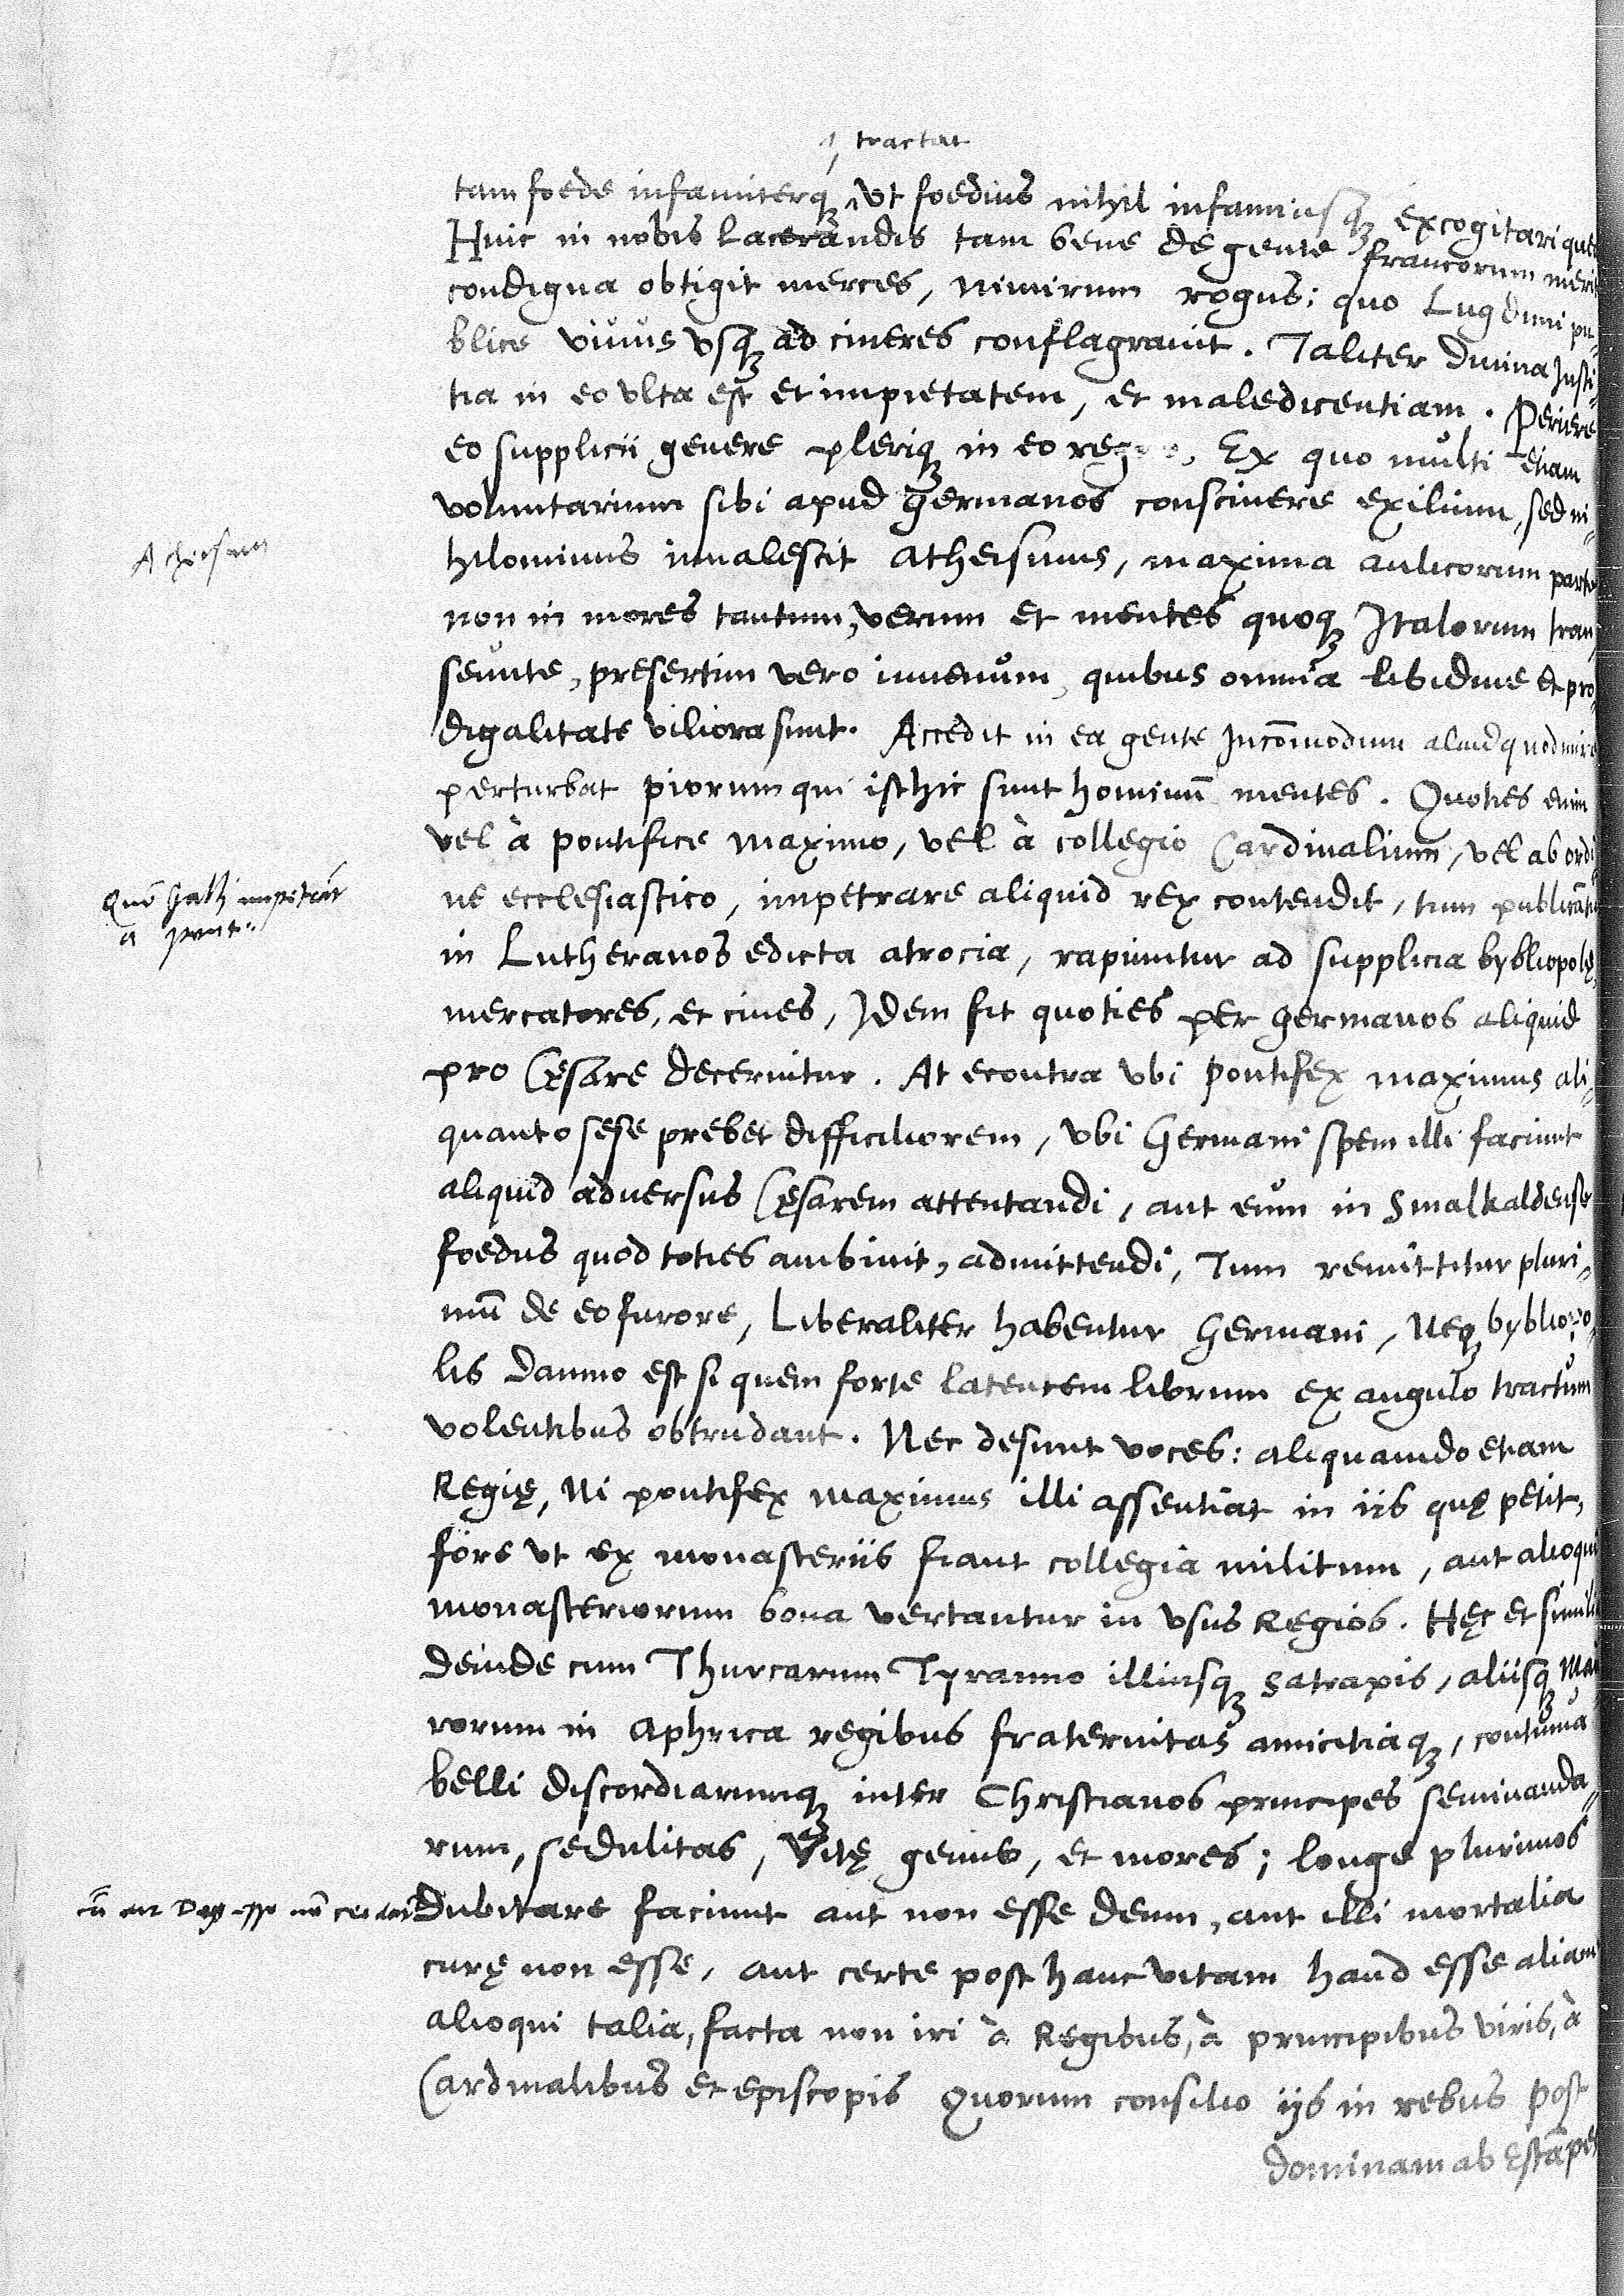 tractat
tam foede infamiterq, ut foedius nihil infamiusq excogitari
Huic in nobis lacerandis tam bene de gente francorum
condigna obtigit merces, nimirum rogus: quo Lugduni pu-
blice vivus vsq ad cineres conflagravit. Taliter Divina Justi-
tia in eo vlta est et impietatem, et maledicentiam. Periere
eo supplicii genere pleriq in eo regno, Ex quo multi etiam
voluntarium sibi apud Germanos conscivere exilium, sed ni-
Atheismus
hilominus invalescit Atheismus, maxima aulicorum parte
non in mores tantum, verum et mentes quoq Italorum tran-
seunte, presertim vero iuvenum, quibus omnia libidine et pro-
digalitate viliora sunt. Accedit in ea gente Incōmodum aliud quod mire
perturbat piorum qui isthic sunt hominū mentes. Quoties enim
vel à pontifice maximo, vel à collegio Cardinalium, vel ab ordi-
ne ecclesiastico, impetrare aliquid rex contendit, tum
in Lutheranos edicta atrocia, rapiuntur ad supplicia bybliopolę,
mercatores, et cives, Idem fit quoties per Germanos aliquid
pro Cęsare decernitur. At econtra vbi pontifex maximus ali-
quanto sese prebet difficiliorem, vbi Germani spem illi faciunt
aliquid adversus Cęsarem attentandi, aut eum in Smalkaldense
foedus quod toties ambivit, admittendi, Tum remittitur pluri-
mū de eo furore, Liberaliter habentur Germani, Neq bybliopo-
lis damno est si quem forte latentem librum ex angulo tractum
volentibus obtrudant. Nec desunt voces: aliquando etiam
Regię, Ni pontifex maximus illi assentiat in iis quę petit,
fore vt ex monasteriis fiant collegia militum, aut alioqui
monasteriorum bona vertantur in vsus Regios. Hęc et similia
deinde cum Thurcarum Tyranno illiusq Satrapis, aliisq Mau
rorum in Aphrica regibus fraternitas amicitiaq, continua
belli discordiarumq inter Christianos principes seminanda-
rum, sedulitas, vitę genus, et mores; longe plurimos
dubitare faciunt aut non esse deum, aut illi mortalia
curę non esse, aut certe post hanc vitam haud esse aliam
alioqui talia, facta non iri à Regibus, à principibus viris, à
Cardinalibus et episcopis quorum consilio iis in rebus post
dominam ab Estāpes